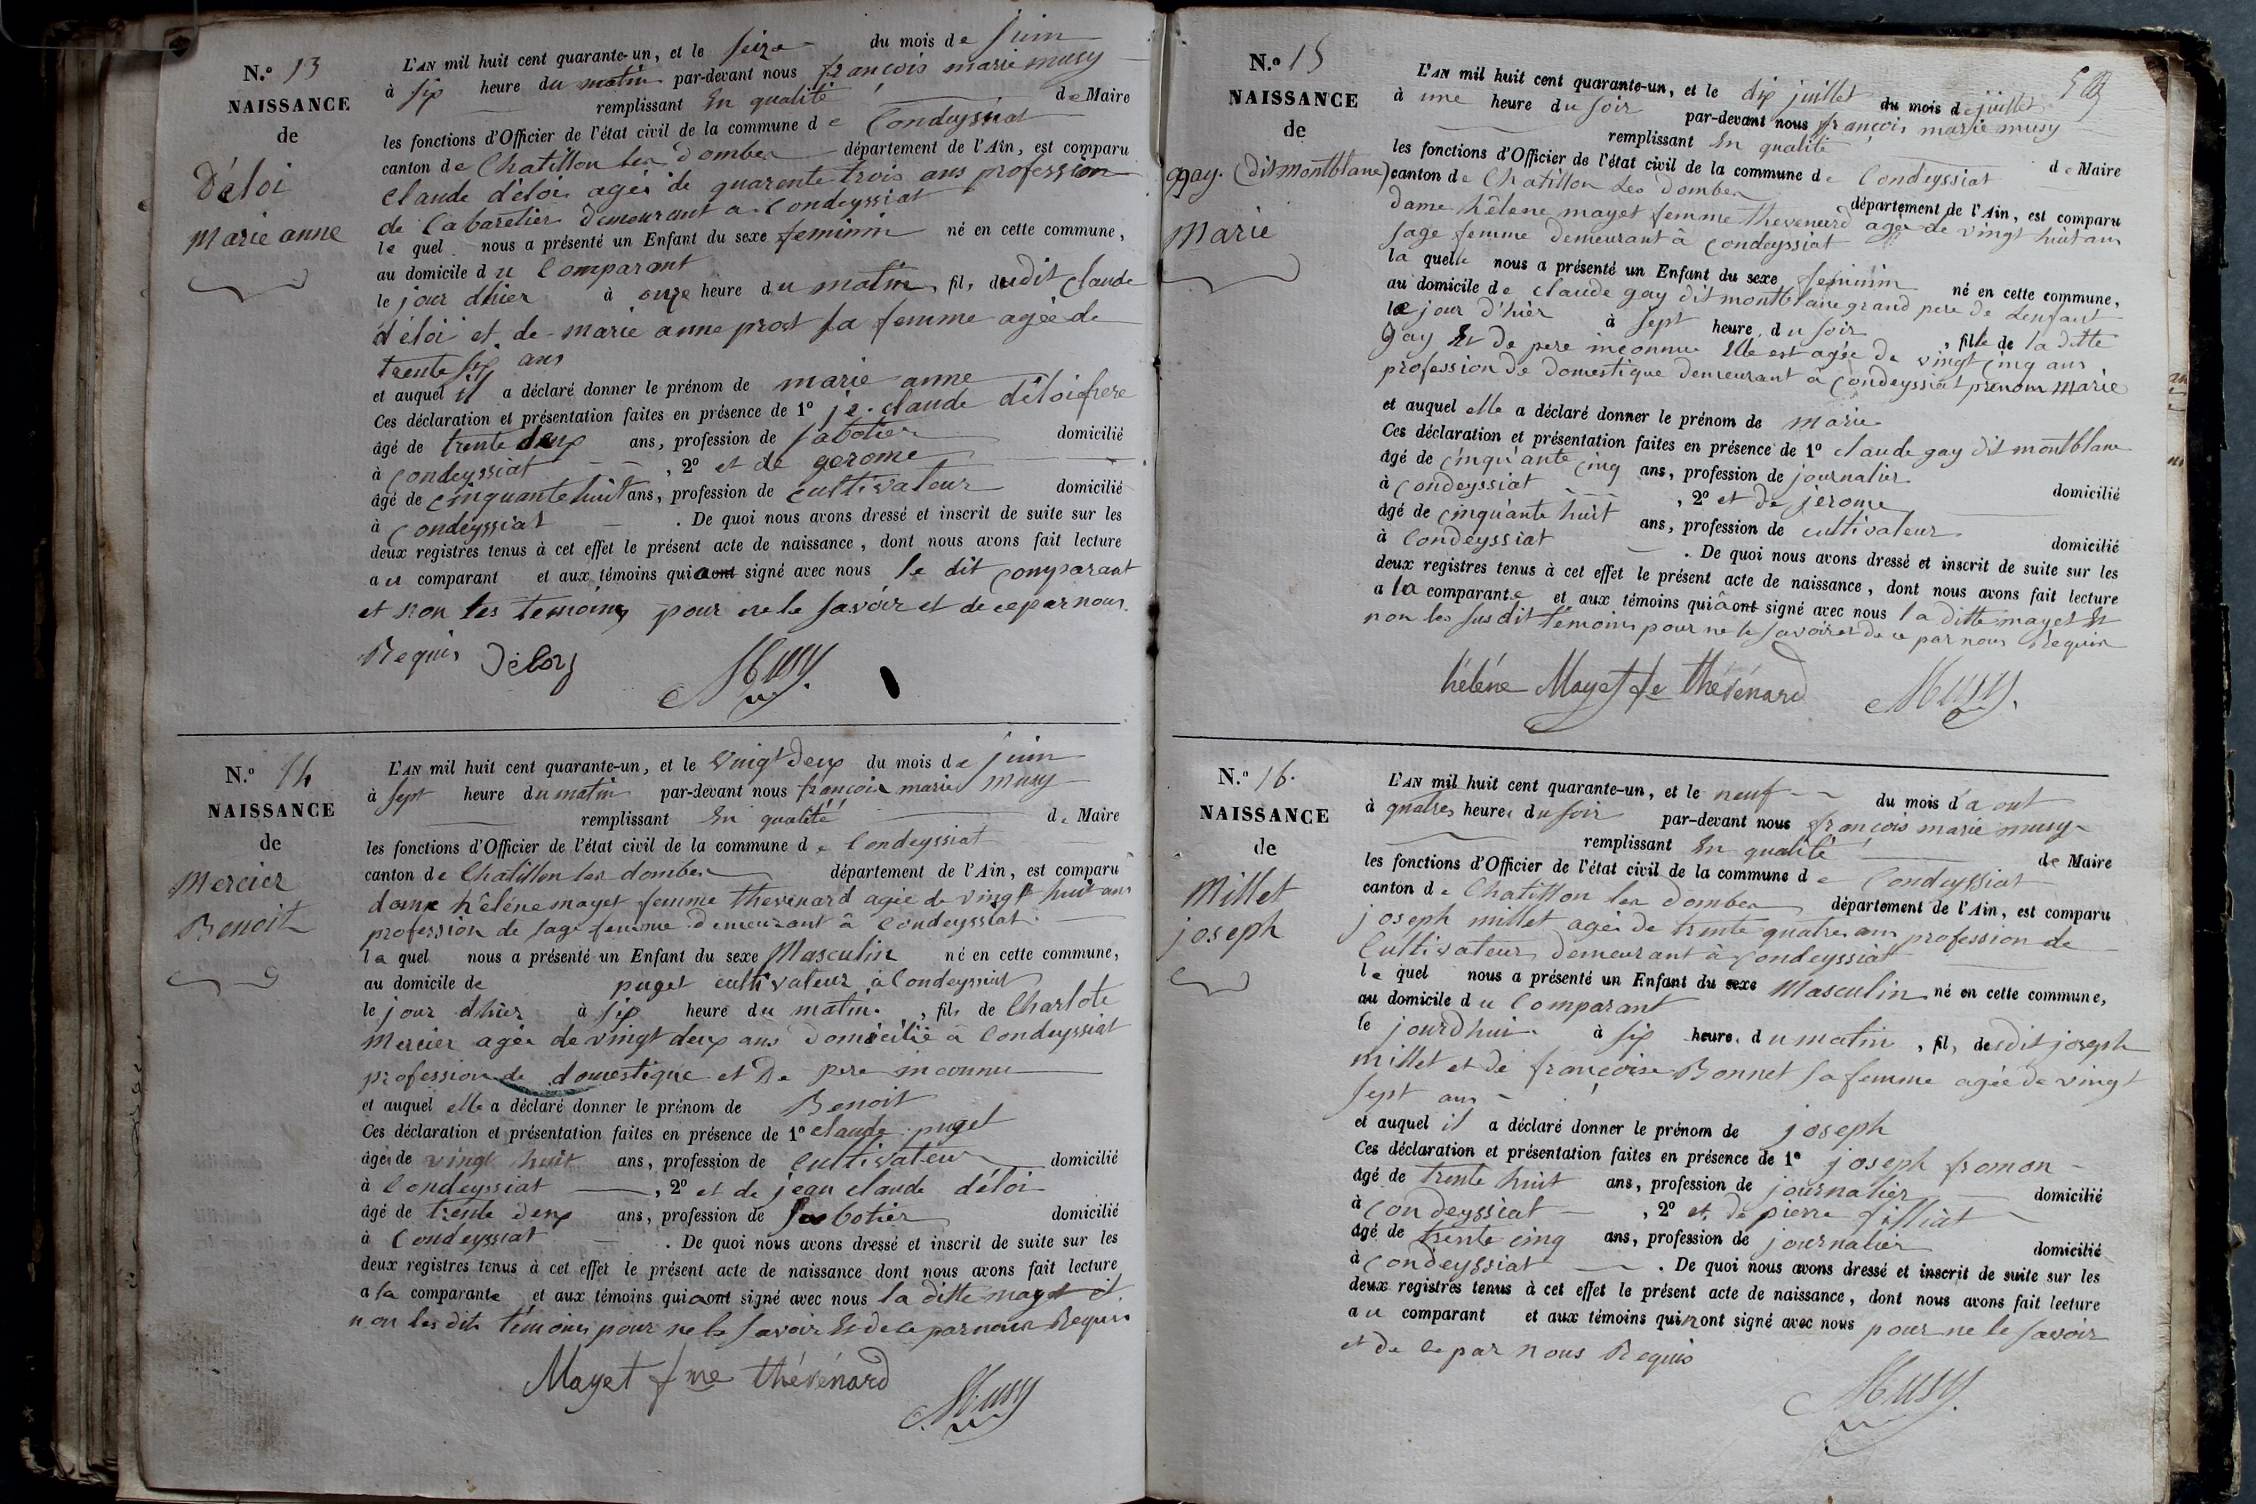 N.º 13
NAISSANCE
de
Déloi
Marie anne
L'AN mil huit cent quarante-un, et le seize du mois de juin
à six heure du matin par-devant nous françois marie musy
remplissant En qualité de Maire
les fonctions d'Officier de l'état civil de la commune de Condeyssiat
canton de Chatillon les dombes département de l'Ain, est comparu
Claude déloi agée de quarente trois ans profession
de Cabaretier demeurant a Condeyssiat
le quel nous a présenté un Enfant du sexe feminin né en cette commune,
au domicile du Comparant
le jour dhier à onze heure du matin, fil, dudit Claude
déloi et de marie anne prost sa femme agée de
trente six ans
et auquel il a déclaré donner le prénom de marie anne
Ces déclaration et présentation faites en présence de 1º je. claude déloi frere
âgé de trente deux ans, profession de sabotier domicilié
à Condeyssiat , 2º et de gerome
âgé de cinquante huit ans, profession de cultivateur domicilié
à Condeyssiat . De quoi nous avons dressé et inscrit de suite sur les
deux registres tenus à cet effet le présent acte de naissance, dont nous avons fait lecture
au comparant et aux témoins qui a ont signé avec nous le dit Comparant
et non les temoins pour ne le savoir et de ce par nous
Requis Déloy Musy
N.º 14
NAISSANCE
de
Mercier
Benoit
L'AN mil huit cent quarante-un, et le vingt deux du mois de juin
à sept heure du matin par-devant nous françois marie musy
remplissant En qualité de Maire
les fonctions d'Officier de l'état civil de la commune de Condeyssiat
canton de Chatillon les dombes département de l'Ain, est comparu
dame hélène mayet femme thevenard agée de vingt huit ans
profession de sage femme demeurant à Condeyssiat
la quel nous a présenté un Enfant du sexe Masculin né en cette commune,
au domicile de puget cultivateur à Condeyssiat
le jour dhier à six heure du matin , fils de Charlote
Mercier agée de vingt deux ans domicilié à Condeyssiat
profession de domestique et De pere inconnu
et auquel elle a déclaré donner le prénom de Benoit
Ces déclaration et présentation faites en présence de 1º claude puget
âgé de vingt huit ans, profession de Cultivateur domicilié
à Condeyssiat , 2º et de jean claude déloi
âgé de trente deux ans, profession de Sabotier domicilié
à Condeyssiat . De quoi nous avons dressé et inscrit de suite sur les
deux registres tenus à cet effet le présent acte de naissance dont nous avons fait lecture
a la comparante et aux témoins qui a ont signé avec nous la ditte mayet et
non les dits témoins pour ne le savoir Et de ce par nous Requis
Mayet fme thévénard Musy
N.º 15
NAISSANCE
de
gay. (dit montblanc)
Marie
L'AN mil huit cent quarante-un, et le dix juillet du mois de juillet
à une heure du soir par-devant nous françois marie musy
remplissant En qualité de Maire
les fonctions d'Officier de l'état civil de la commune de Condeyssiat
canton de Chatillon Les Dombes département de l'Ain, est comparu
dame hélene mayet femme thevenard agée de vingt huit ans
sage femme demeurant à Condeyssiat
la quelle nous a présenté un Enfant du sexe feminin né en cette commune,
au domicile de claude gay dit montblanc grand pere de Lenfant
le jour d'hier à sept heure du soir , fille de la ditte
Gay Et de pere inconnue Elle est agée de vingt cinq ans
profession de Domestique demeurant à Condeyssiat prenom Marie
et auquel elle a déclaré donner le prénom de marie
Ces déclaration et présentation faites en présence de 1º claude gay dit montblanc
âgé de cinquante cinq ans, profession de journalier domicilié
à Condeyssiat , 2º et de jerome
âgé de cinquante huit ans, profession de cultivateur domicilié
à Condeyssiat . De quoi nous avons dressé et inscrit de suite sur les
deux registres tenus à cet effet le présent acte de naissance, dont nous avons fait lecture
a la comparante et aux témoins qui a ont signé avec nous la ditte mayet Et
non les susdit témoins pour ne le savoir et de ce par nous Requis
hélène Mayet fe thévénard Musy
N.º 16.
NAISSANCE
de
Millet
joseph
L'AN mil huit cent quarante-un, et le neuf du mois d'aout
à quatre heures du soir par-devant nous françois marie musy
remplissant En qualité de Maire
les fonctions d'Officier de l'état civil de la commune de Condeyssiat
canton de Chatillon les Dombes département de l'Ain, est comparu
joseph millet agée de trente quatre ans profession de
Cultivateur demeurant à Condeyssiat
le quel nous a présenté un Enfant du sexe Masculin né en cette commune,
au domicile du Comparant
le jourdhui à six heure, du matin , fil, dudit joseph
millet et de françoise Bonnet sa femme agée de vingt
sept ans
et auquel il a déclaré donner le prénom de joseph
Ces déclaration et présentation faites en présence de 1º joseph fromon
âgé de trente huit ans, profession de journalier domicilié
à Condeyssiat , 2º et de pierre filliat
âgé de trente cinq ans, profession de journalier domicilié
à Condeyssiat . De quoi nous avons dressé et inscrit de suite sur les
deux registres tenus à cet effet le présent acte de naissance, dont nous avons fait lecture
au comparant et aux témoins qui n ont signé avec nous pour ne le savoir
et de ce par nous Requis
Musy